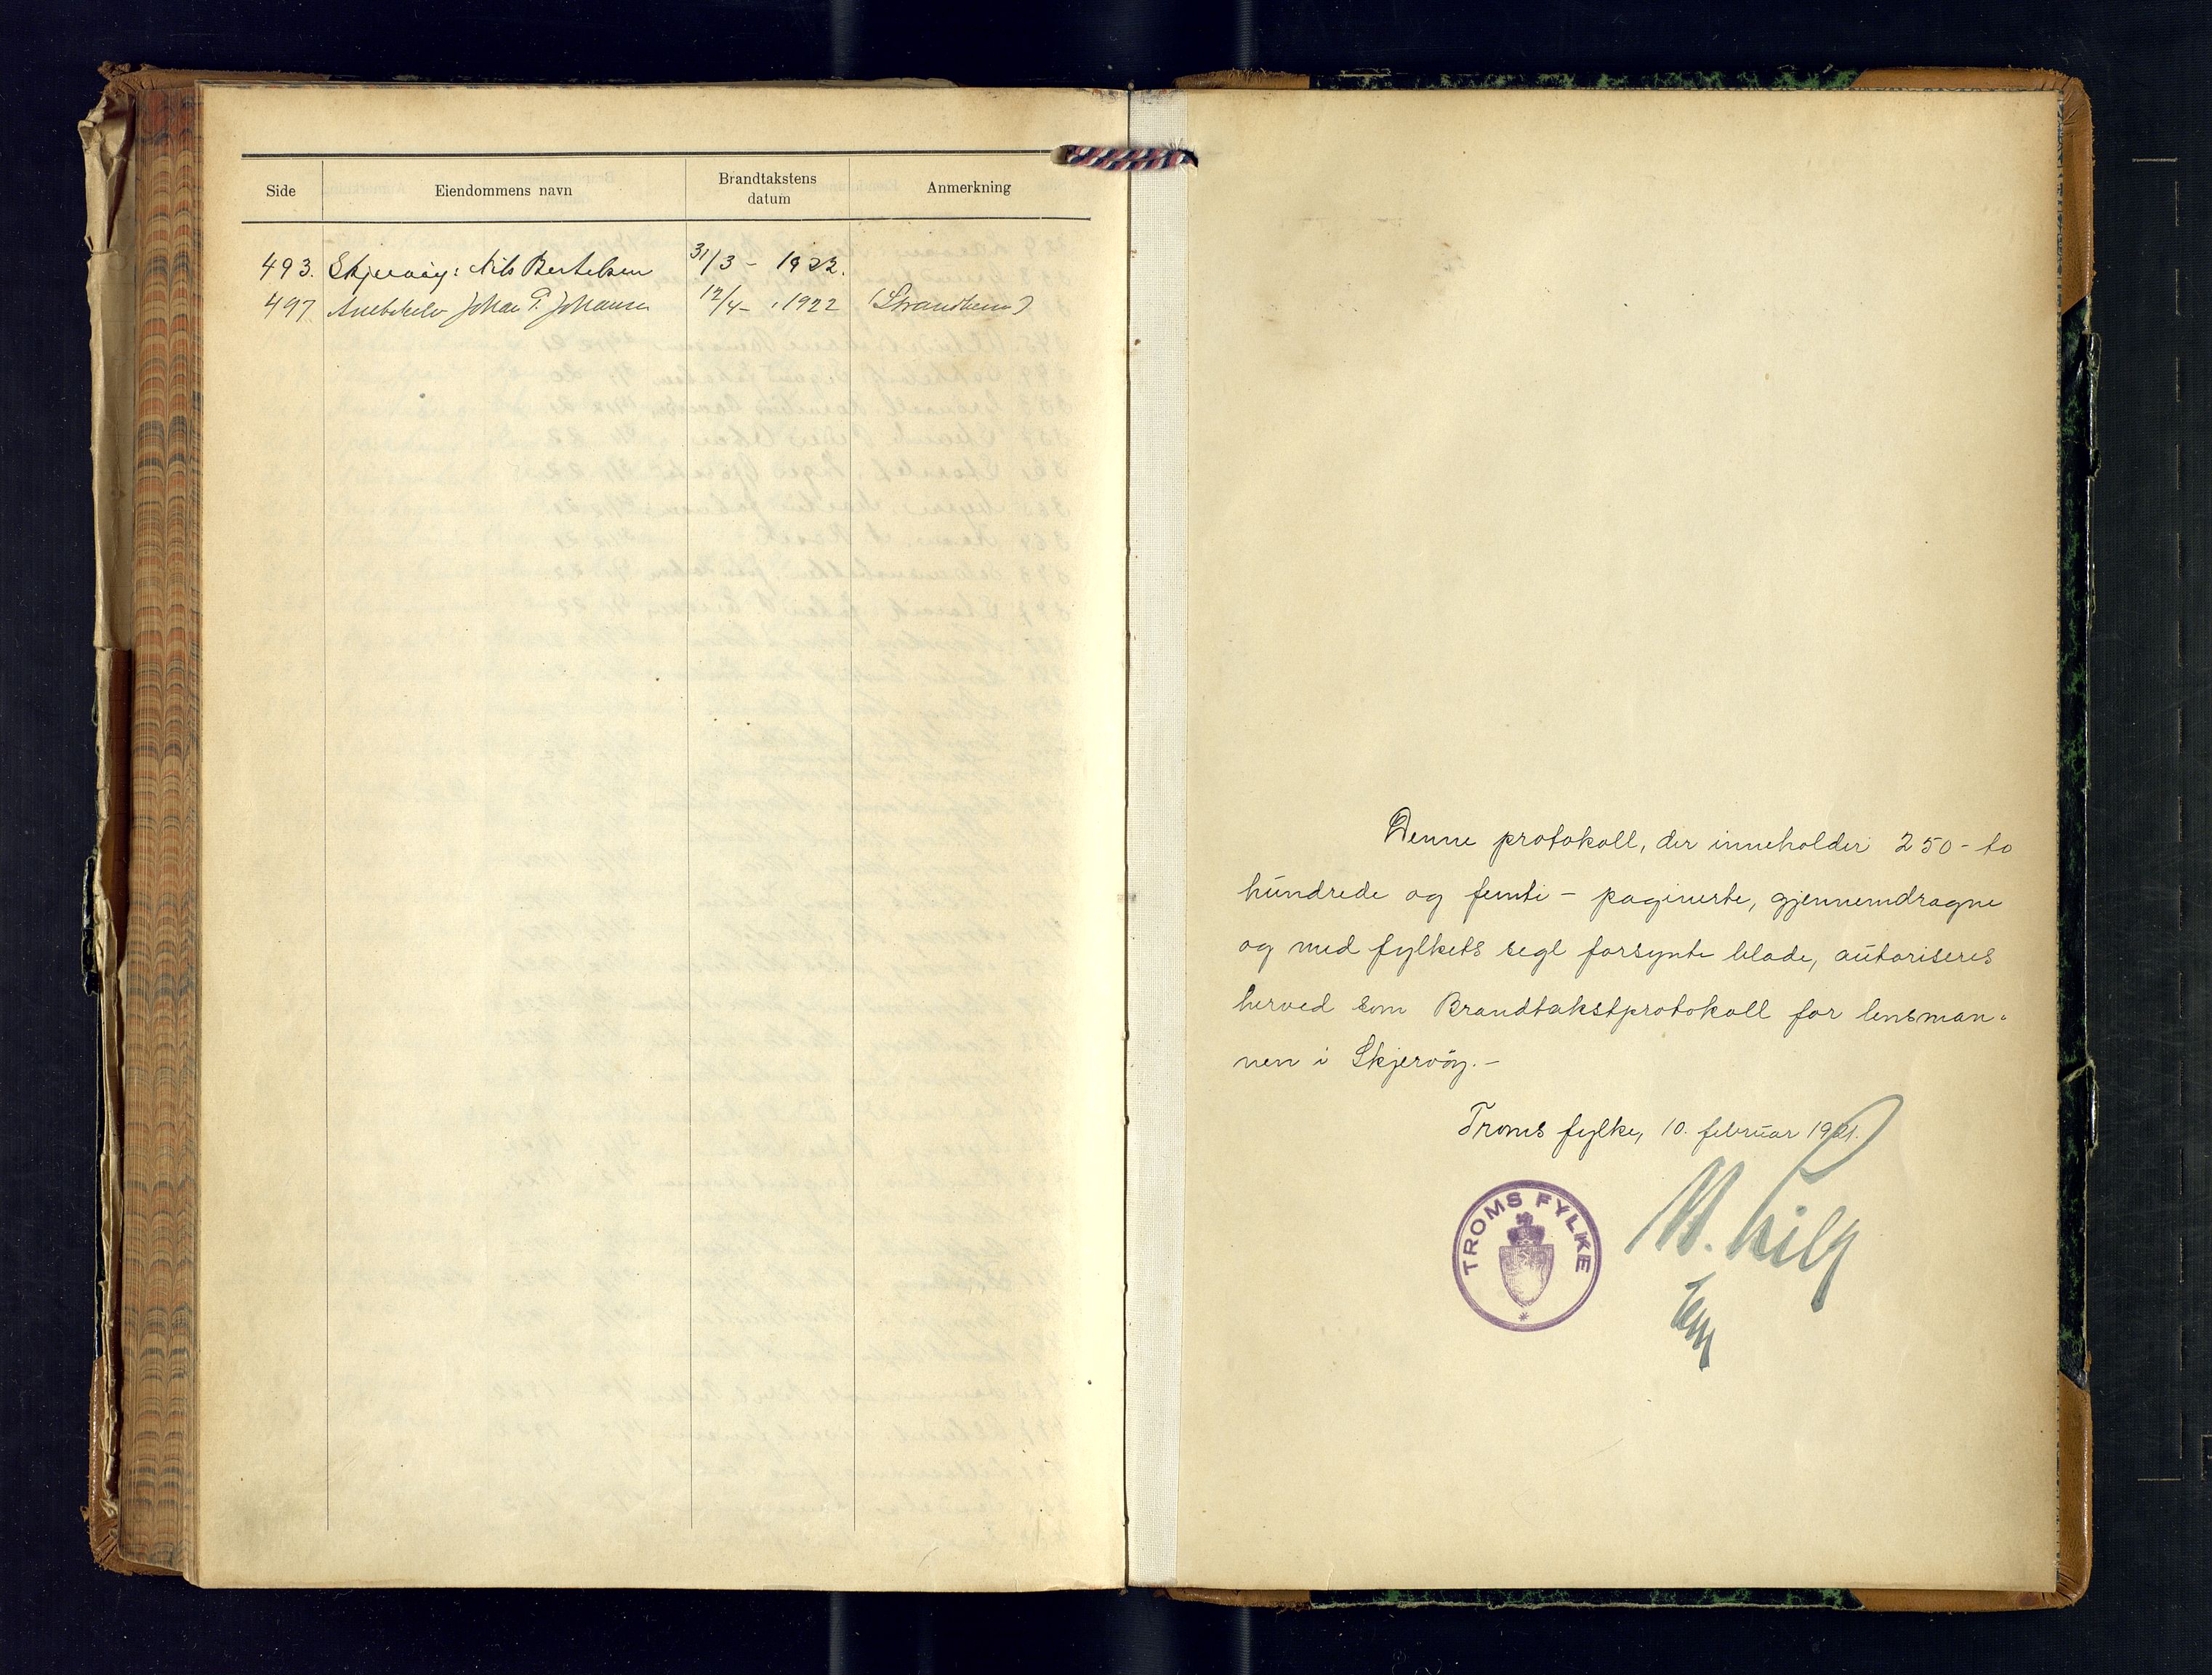 Side Eiendommens navn Brandtakstens datum Anmerkning
493. Skjervöy: Nils Bertelsen 31/3 - 1922.
497 Johan P. Johansen 12/4 - 1922 (Strandheim)
Denne protokoll, der inneholder 250 - to
hundrede og femti - paginerte, gjennemdragne
og med fylkets segl forsynte blade, autoriseres
herved som Brandtakstprotokoll for lensman-
nen i Skjervöy. -
Troms fylke, 10. februar 1921.
TROMS FYLKE